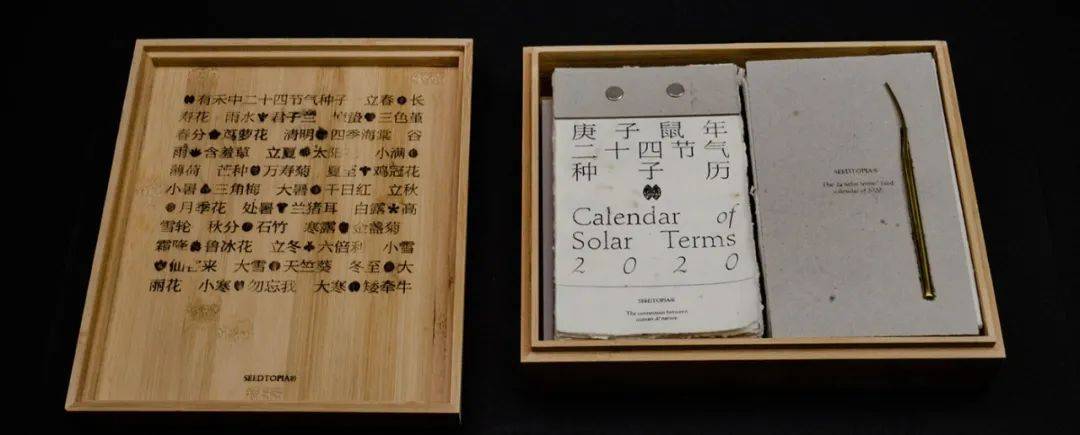 有禾中二十四节气种子 立春 长
寿花 雨水 君子兰 三色堇
春分 茑萝花 清明 四季海棠 谷
雨 含羞草 立夏 太阳 小满
薄荷 芒种 万寿菊 夏至 鸡冠花
小暑 三角梅 大暑 千日红 立秋
月季花 处暑 兰猪耳 白露 高
雪轮 秋分 石竹 寒露 金盏菊
霜降 鲁冰花 立冬 六倍利 小雪
仙 来 大雪 天竺葵 冬至 大
丽花 小寒 勿忘我 大寒 矮牵牛
SEEDTOPIA®
庚子鼠年
二十四节气
种子历
Calendar of
Solar Terms
2020
SEEDTOPIA®
The connexion between
human & nature
SEEDTOPIA®
The 24 solar terms' seed
calendar of 2020